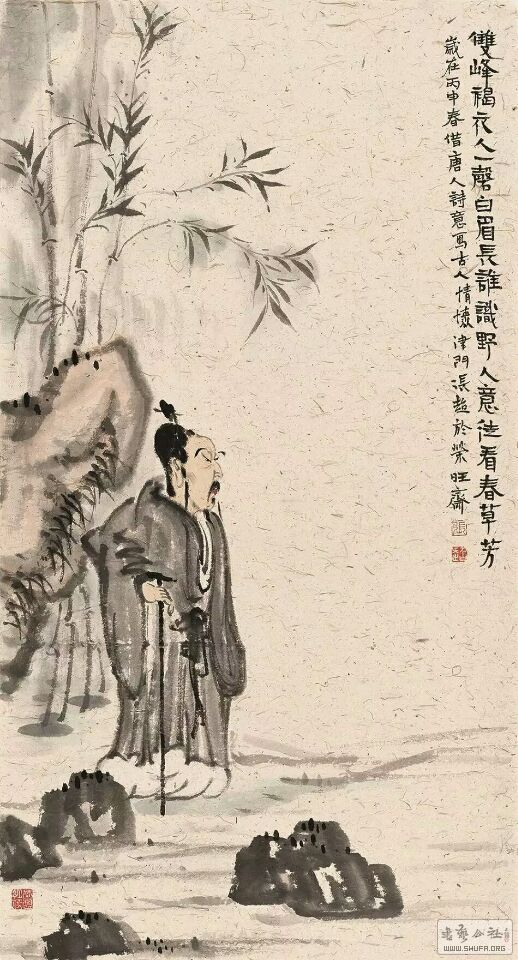 雙峰褐衣人一磬白眉長誰識野人意徙看春草芳
歲在丙申春借唐人詩意寫古人情懷津門張趙於榮旺齋
書藝公社
WWW.SHUFA.ORG